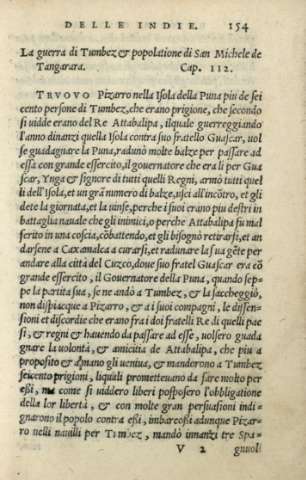 DELLE INDIE. 154
La guerra di Tumbez & popolatione di San Michele de
Tangarara. Cap. 112.
TRVOVO Pizarro nella Isola della Puna piu de sei
cento persone di Tumbez, che erano prigione, che secondo
si uidde erano del Re Attabalipa, ilquale guerreggiando
l'anno dinanzi quella Isola contra suo fratello Guascar, uol
se guadagnare la Puna, radunò molte balze per passare ad
essa con grande essercito, il gouernatore che era li per Gua
scar, Ynga & signore di tutti quelli Regni, armò tutti quel
li dell'Isola, et un grã numero di balze, uscì all'incõtro, et gli
dete la giornata, et la uinse, perche i suoi erano piu destri in
battaglia nauale che gli inimici, o perche Attabalipa fu mal
ferito in una coscia, cõbattendo, et gli bisognò retirarsi, et an
darsene a Caxamalca a curarsi, et radunare la sua gẽte per
andare alla città del Cuzco, doue suo fratel Guascar era cõ
grande essercito, il Gouernatore della Puna, quando sep-
pe la partita sua, se ne andò a Tumbez, & la saccheggiò,
non dispiacque a Pizarro, & a i suoi compagni, le dissen-
sioni et discordie che erano fra i doi fratelli Re di quelli pae
si, & regni & hauendo da passare ad esse, uolsero guada
gnare la uolontà, & amicitia de Attabalipa, che piu a
proposito & a mano gli ueniua, & mandorono a Tumbez
seicento prigioni, liquali promettenano da fare molto per
essi, ma come si uiddero liberi posposero l'obbligatione
della lor libertà, & con molte gran persuasioni indi-
gnarono il popolo contra essi, imbarcosi adunque Pizar-
ro nelli nauilli per Tumbez, mandò innanzi tre Spa-
V 2 gnuol